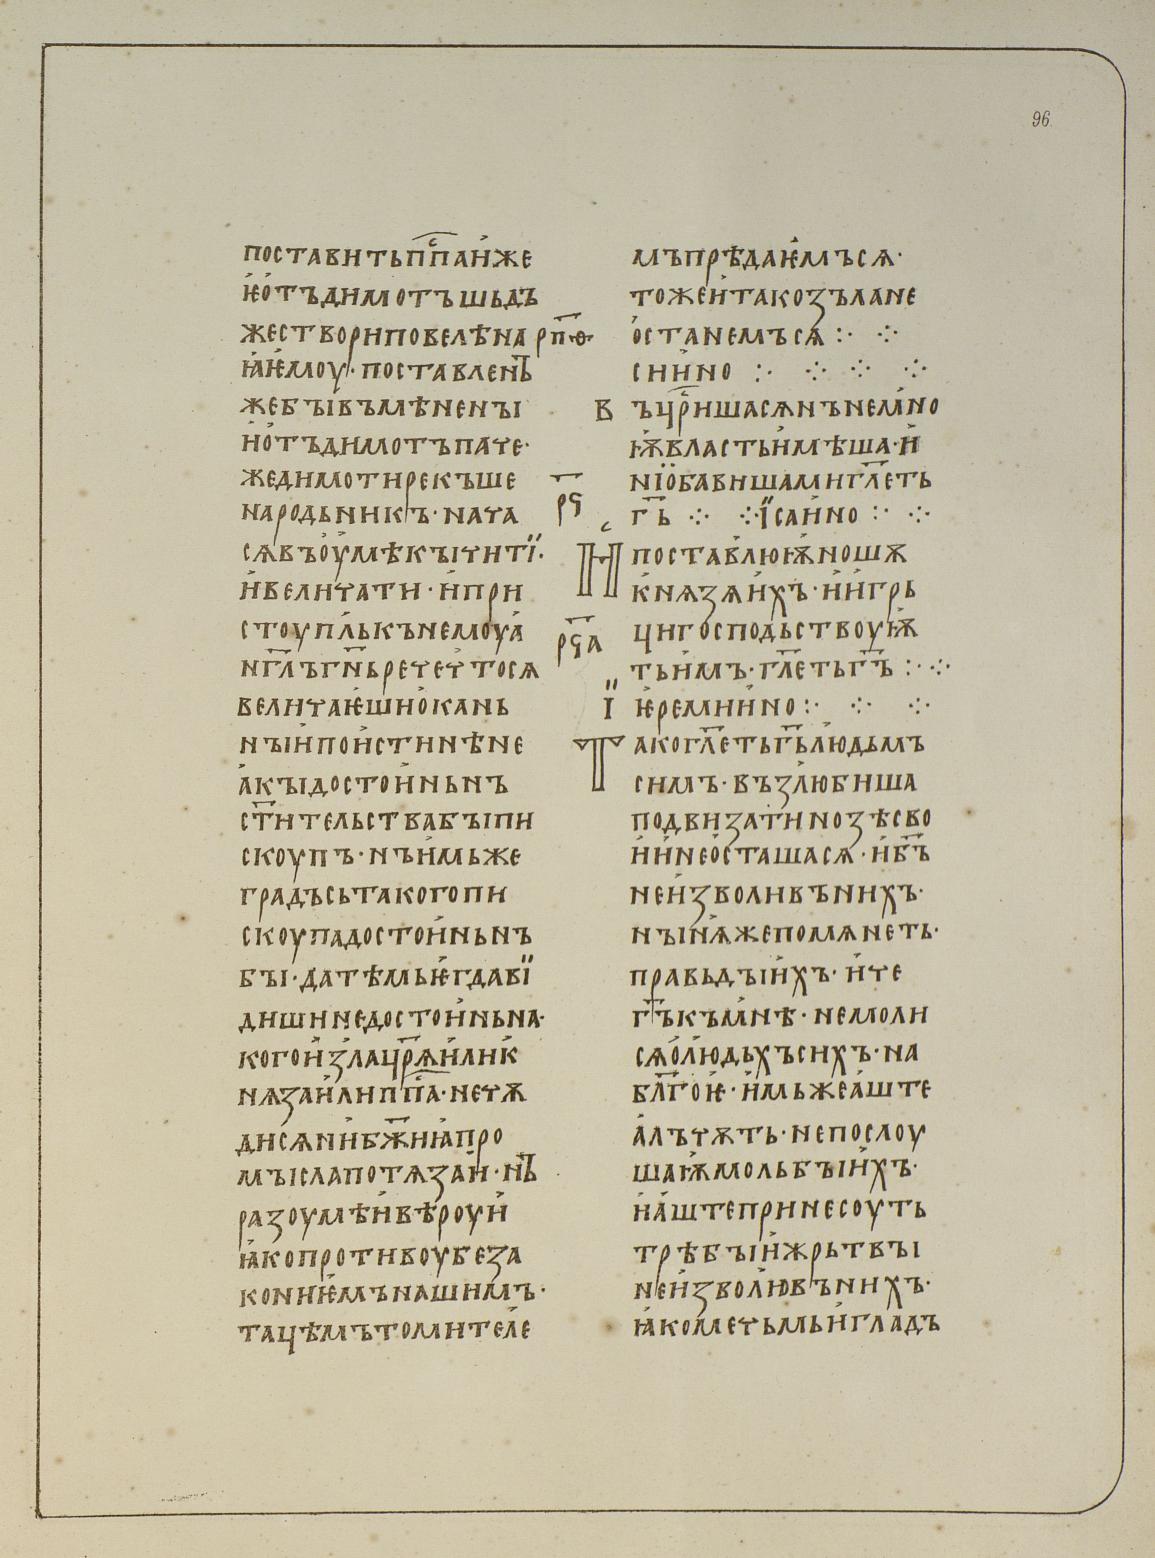 96.
поставитьпп҃анже
ѥотъдимотъшьдъ
жествориповелѣна рп҃ѳ
ꙗѥмоу· поставленъ
жебꙑвъмѣненꙑ
нотъдимотъпаче·
жедимотирекъше
народьникъ· ната рч҃
сѧвъоумѣкꙑчитї·
ивеличати· ипри
стоуплькънемоуа рч҃а
нг҃лъгн҃ьречетътосѧ
величаѥшиокань
нꙑипоистинѣне
акꙑдостоиньнъ
ст҃ительствабꙑпи
скоупъ· нъимьже
градъсьтакогопи
скоупадостоиньнъ
бꙑ· датѣмьѥгдавї
дишинедостоиньна·
когоизлацр҃ѧилик
нѧзаилипп҃а· нечѫ
дисѧниб҃жниꙗпро
мꙑслапотѧзаи· нъ
разоумѣивѣроуи
ꙗкопротивоубеза
кониѥмънашимъ·
тацѣмътомителе
мъпрѣдаѥмъсѧ·
тожеитакозълане
останемъсѧ :· ⁘
сиино :· ⁘ ⁘ ⁘
В ъцр҃ишасѧнънемно
ѭвластьимѣша· и
нїобавишамигл҃еть
г҃ь ⁘ ⁘ їсаино :· ⁘
И поставлюѭношѫ
кнѧзѧихъ· иигрь
цигосподьствоуѭ
тьимъ· гл҃етьг҃ъ :· ⁘
ї ѥремиино :· ⁘ ⁘
Т акогл҃етьг҃ьлюдьмъ
симъ· възлюбиша
подвизатинозѣсво
иинеосташасѧ· иб҃ъ
неизволивънихъ·
нꙑнѧжепомѧнеть·
правьдꙑихъ· ите
г҃ъкъмнѣ· немоли
сѧолюдьхъсихъ· на
бл҃гоѥ· имьжеаште
алъчѫть· непослоу
шаѭмольбꙑихъ·
иаштепринесоуть
трѣбꙑижрьтвꙑ
неизволювънихъ·
ꙗкомечьмьигладъ